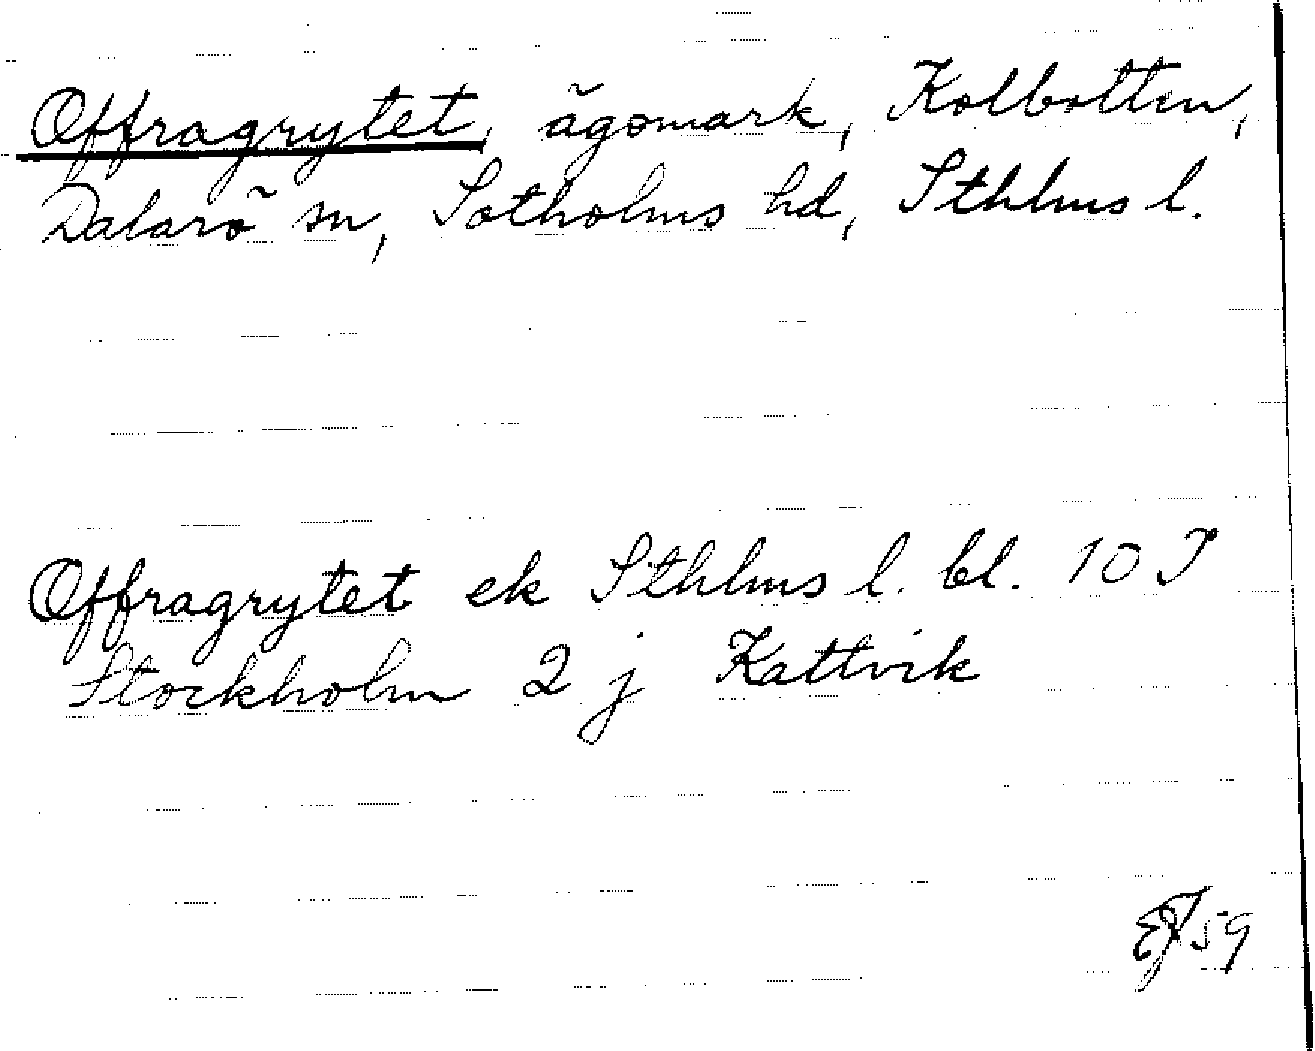 Offragrytet, ägomark, Kolbotten,
Dalarö sn, Sotholms hd, Sthlms l.
Offragrytet ek Sthlms l. bl. 10 I
Stockholm 2 j Kattvik
59